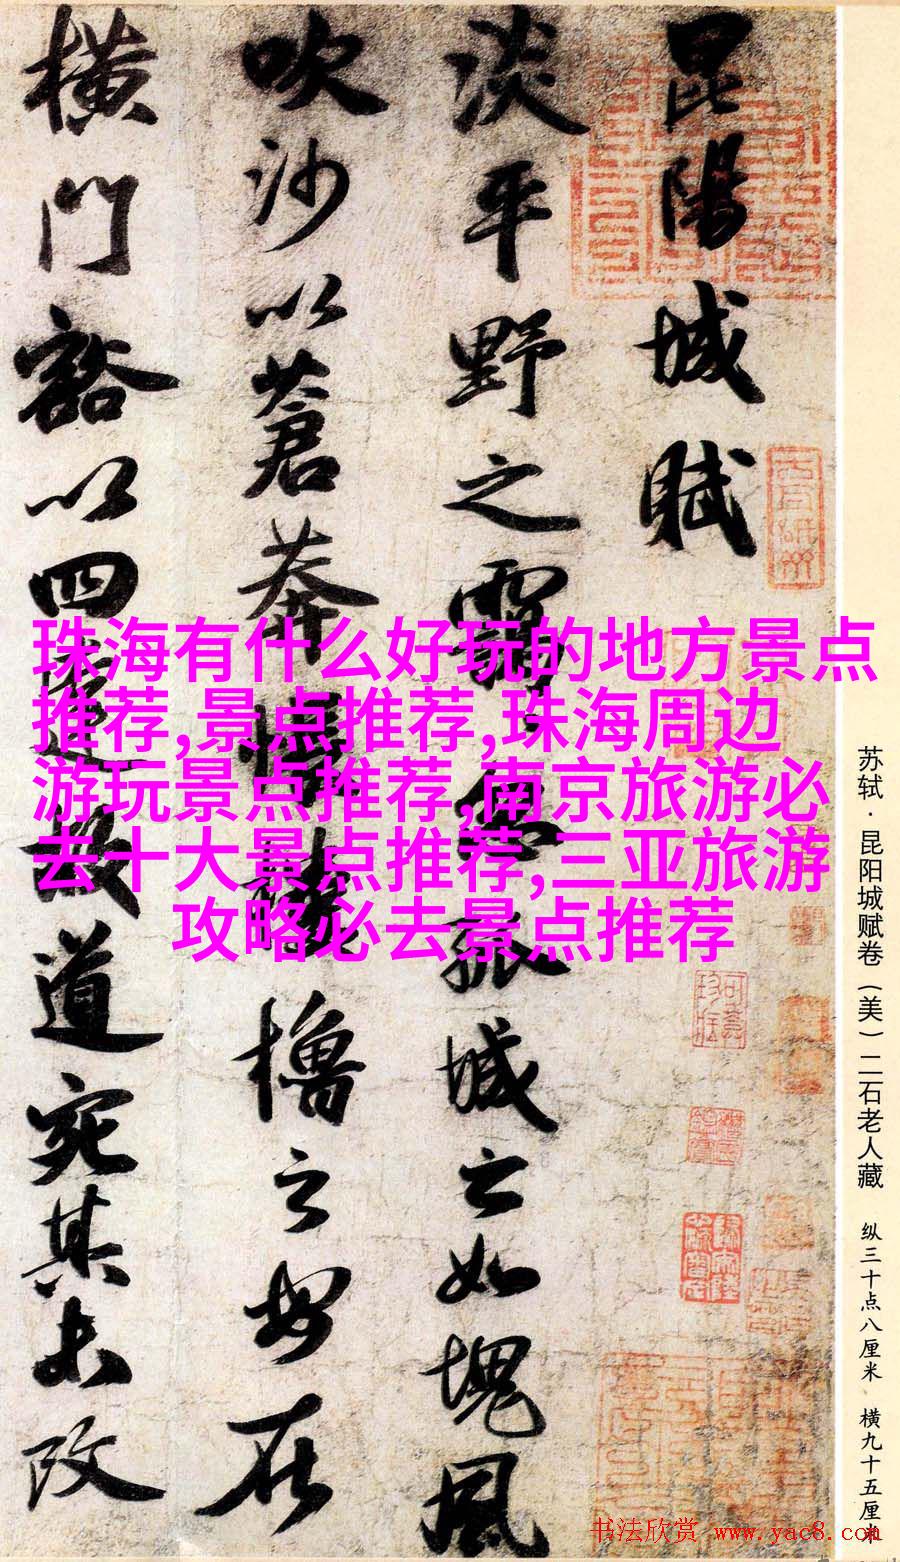 昆陽城賦
淡平野之靄靄忽孤城之如塊風
吹沙以蒼莽悵樓櫓之安在
橫門豁以四達故道宛其未改
珠海有什么好玩的地方景点
推荐,景点推荐,珠海周边
游玩景点推荐,南京旅游必
去十大景点推荐,三亚旅游
攻略必去景点推荐
苏轼·昆阳城赋卷(美)二石老人藏 纵三十点八厘米 横九十五厘米
书法欣赏 www.yac8.com